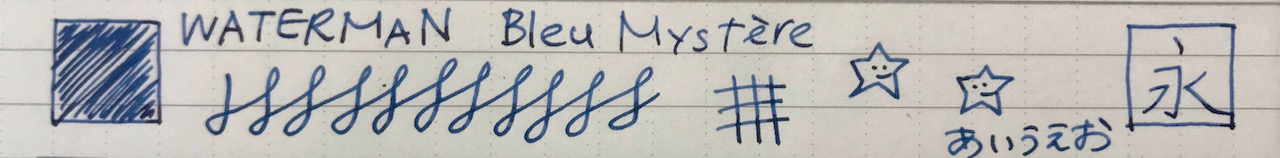 WATERMAN Bleu Mystère
永
あいうえお